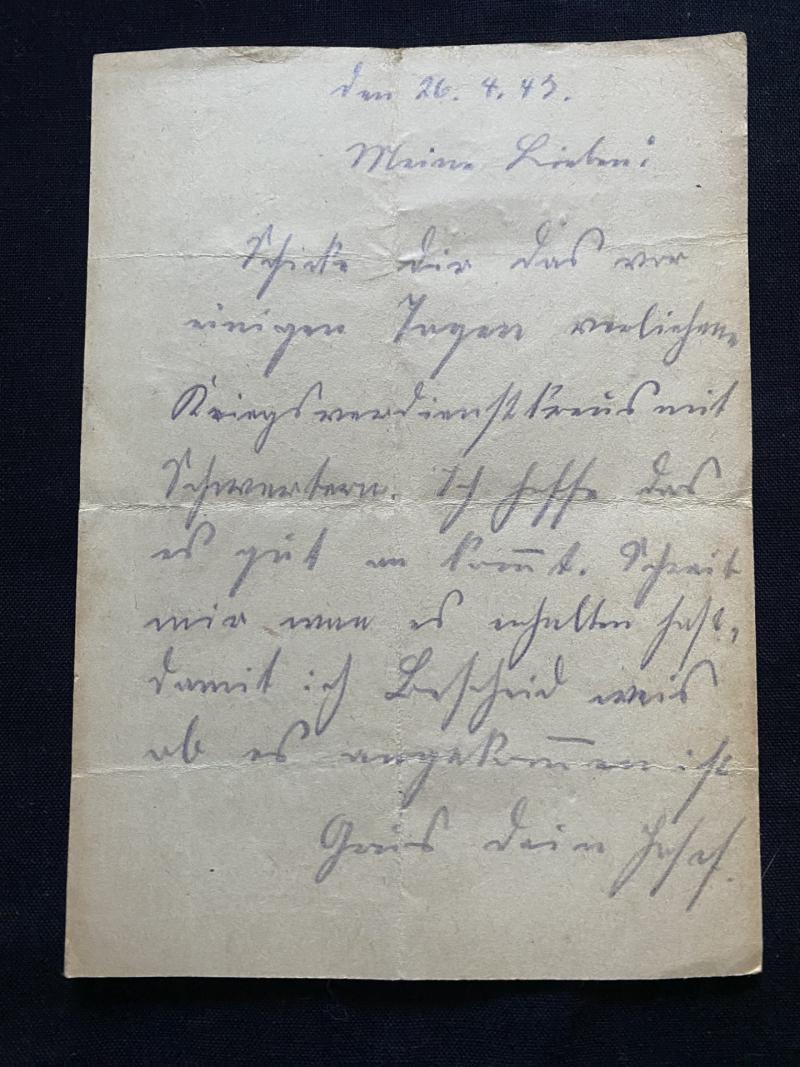 den 26. 4. 43.
Meine Lieben!
Schicke dir das vor
einigen Tagen verliehene
Kriegsverdienstkreus mit
Schwertern. Ich hoffe das
es gut an kom̅t. Schreib
mir wan es erhalten hast,
damit ich Bescheid weis
ob es angekom̅en ist
Grus dein Josef.